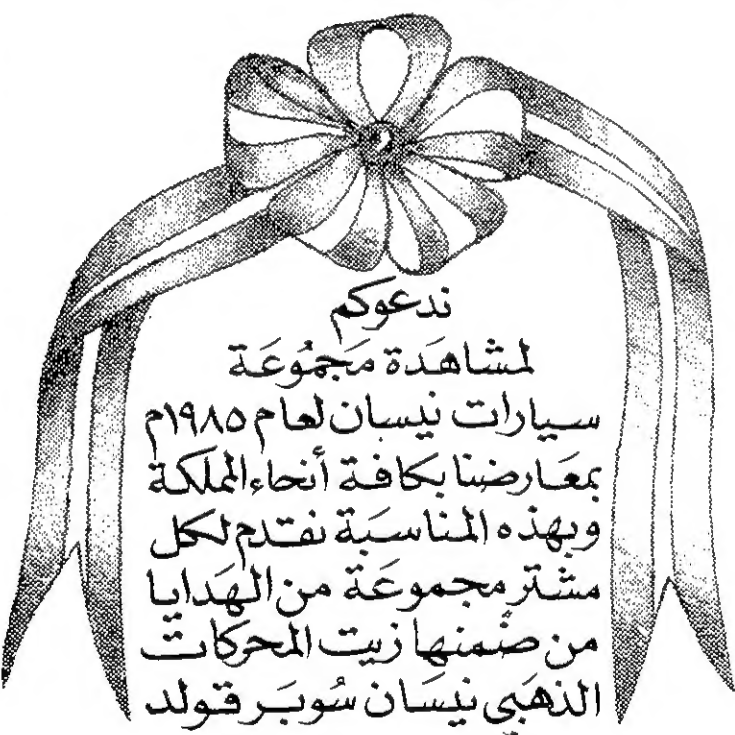 ندعوكم
لمشاهَدة مَجمُوعَة
سيارات نيسان لعام ١٩٨٥م
بمعَارضنا بكافة أنحاء المملكة
وبهذه المناسَبة نقدم لكل
مشتر مجموعَة من الهَدايا
من ضمنها زيت المحركات
الذهَبي نيسَان سُوبَر قولد